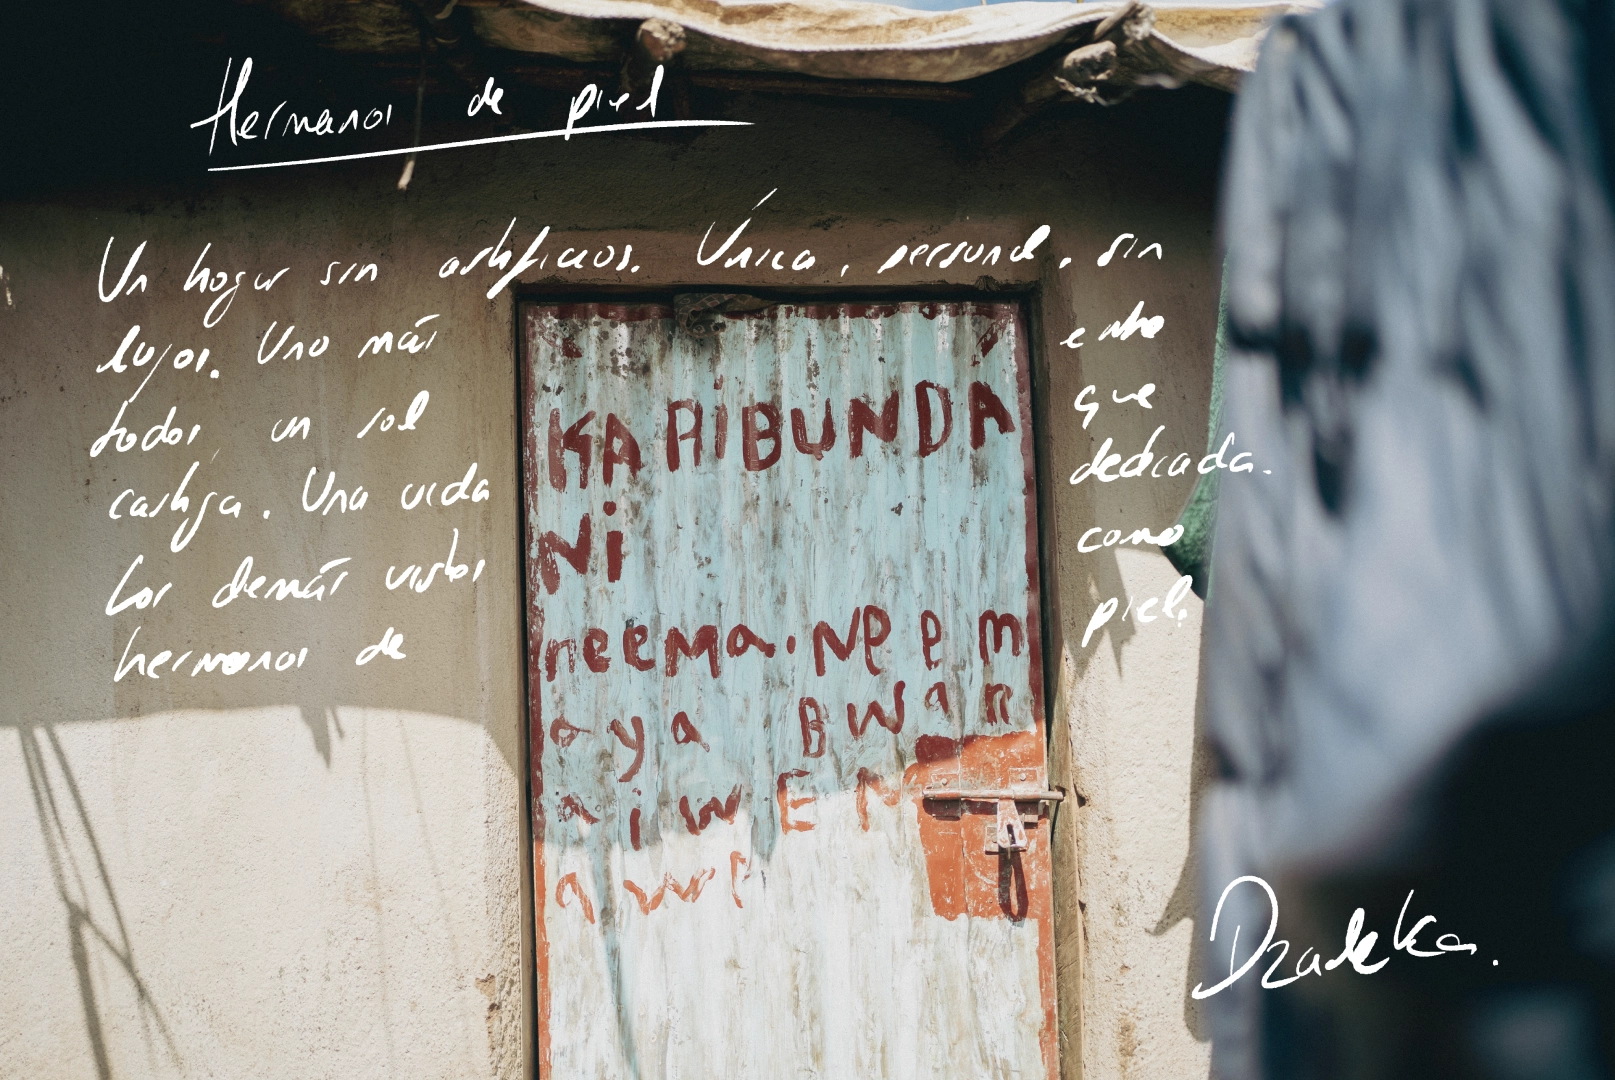 Hermanos de piel
Un hogar sin artificios. Única, personal, sin
lujos. Uno más entre
todos, un sol que
castiga. Una vida dedicada.
Los demás vistos como
hermanos de piel.
KARIBUNDA
Ni
neema. Neem
aya Bwan
aiwEN
awe
Dzaleka.